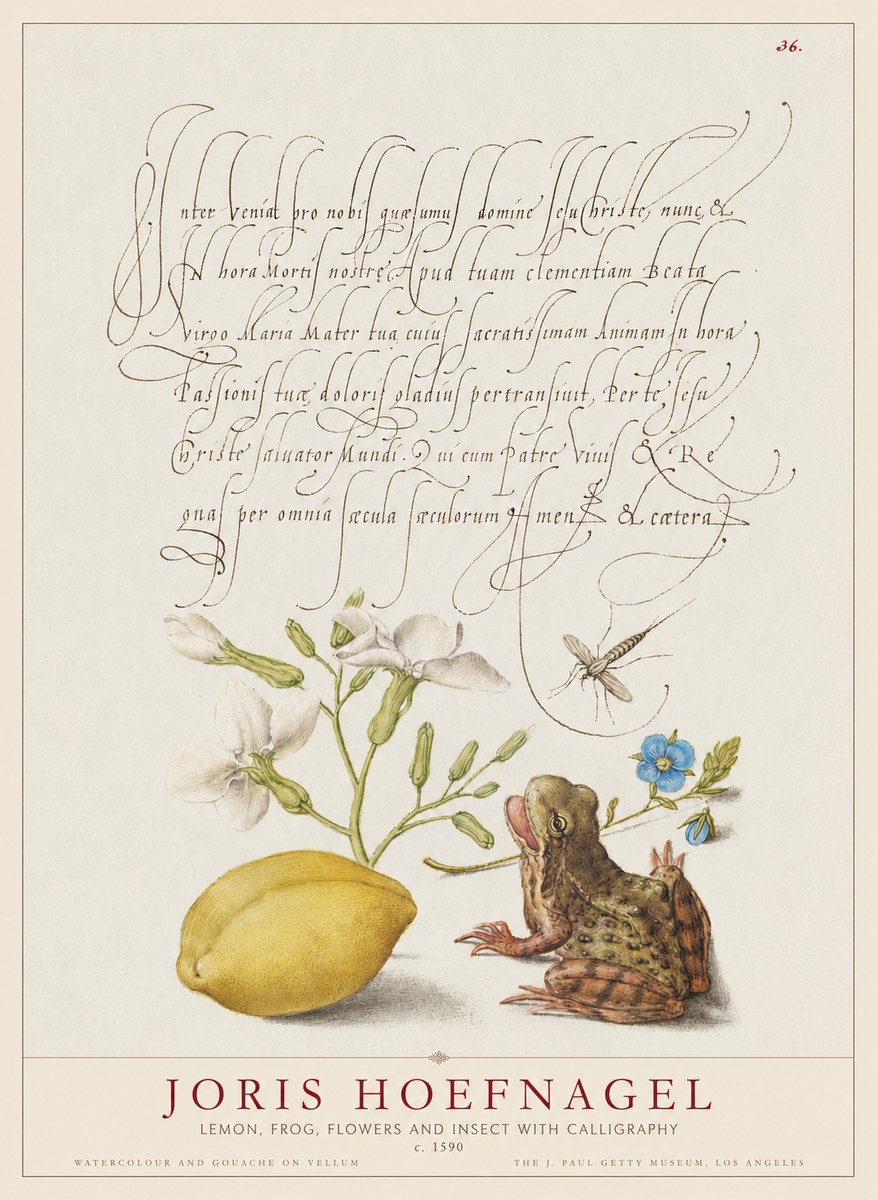 36.
Inter veniat pro nobis quæsumus domine Jesu Christe, nunc, &
IN hora Mortis nostrę Apud tuam clementiam Beata
virgo Maria Mater tua, cuius sacratissimam Animam In hora
Passionis tuæ, doloris gladius pertransiuit, Per te, Jesu
Christe saluator Mundi. Qui cum Patre viuis & Re
gnas per omnia sæcula sæculorum Amen & cætera
JORIS HOEFNAGEL
LEMON, FROG, FLOWERS AND INSECT WITH CALLIGRAPHY
c. 1590
WATERCOLOUR AND GOUACHE ON VELLUM
THE J. PAUL GETTY MUSEUM, LOS ANGELES